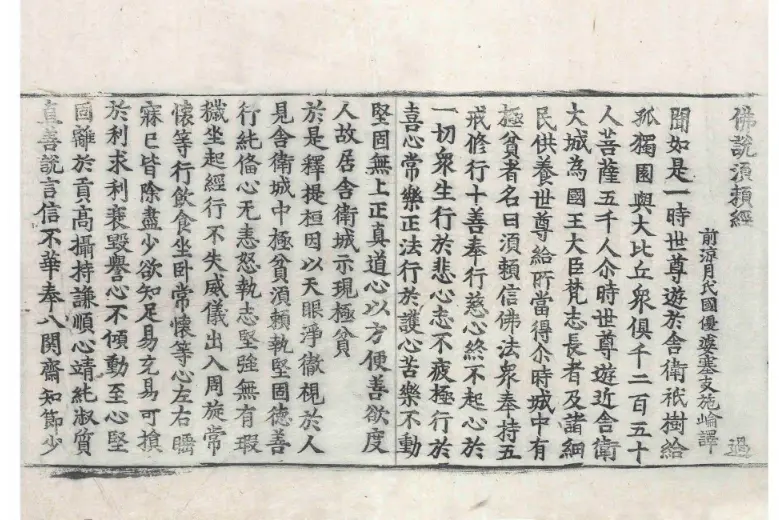 佛說須賴經 過
前涼月氏國優婆塞支施崙譯
聞如是一時世尊遊於舍衛祇樹給
孤獨園與大比丘眾俱千二百五十
人菩薩五千人尒時世尊遊近舍衛
大城為國王大臣梵志長者及諸細
民供養世尊給所當得尒時城中有
極貧者名曰須賴信佛法眾奉持五
戒修行十善奉行慈心終不起心於
一切眾生行於悲心志不疲極行於
喜心常樂正法行於護心苦樂不動
堅固無上正真道心以方便善欲度
人故居舍衛城示現極貧
於是釋提桓因以天眼淨徹視於人
見舍衛城中極貧須賴執堅固德善
行純備心无恚怒執志堅強無有瑕
穢坐起經行不失威儀出入周旋常
懷等行飲食坐卧常懷等心左右
寐已皆除盡少欲知足易充易可
於利求利衰毀譽心不傾動至心堅
固離於貢高攝持謙順心靖純淑質
直善說言信不華奉八関齋知節少